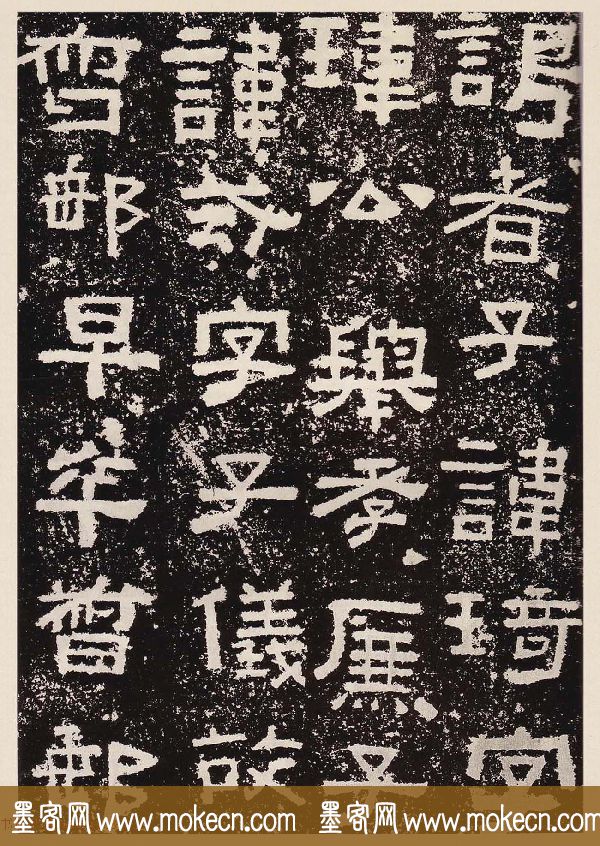 謁者子諱琦字
瑋公舉孝廉子
諱字子儀故
督郵早卒督郵
墨客网 www.mokecn.com 墨客网 www.mokecn.com